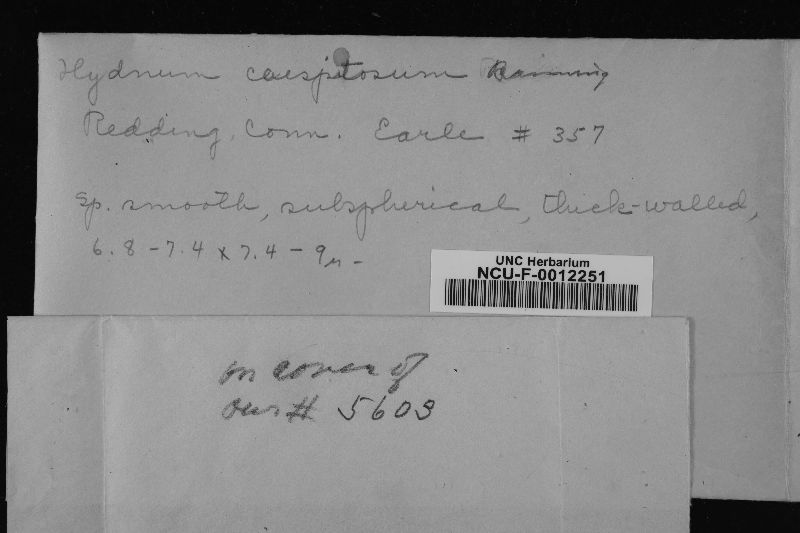 Hydnum caespitosum Banning
Redding, Conn. Earle # 357
Sp. smooth, subspherical, thick-walled,
6.8 - 7.4 x 7.4 - 9µ -
UNC Herbarium
NCU-F-0012251
on cover of
our # 5603